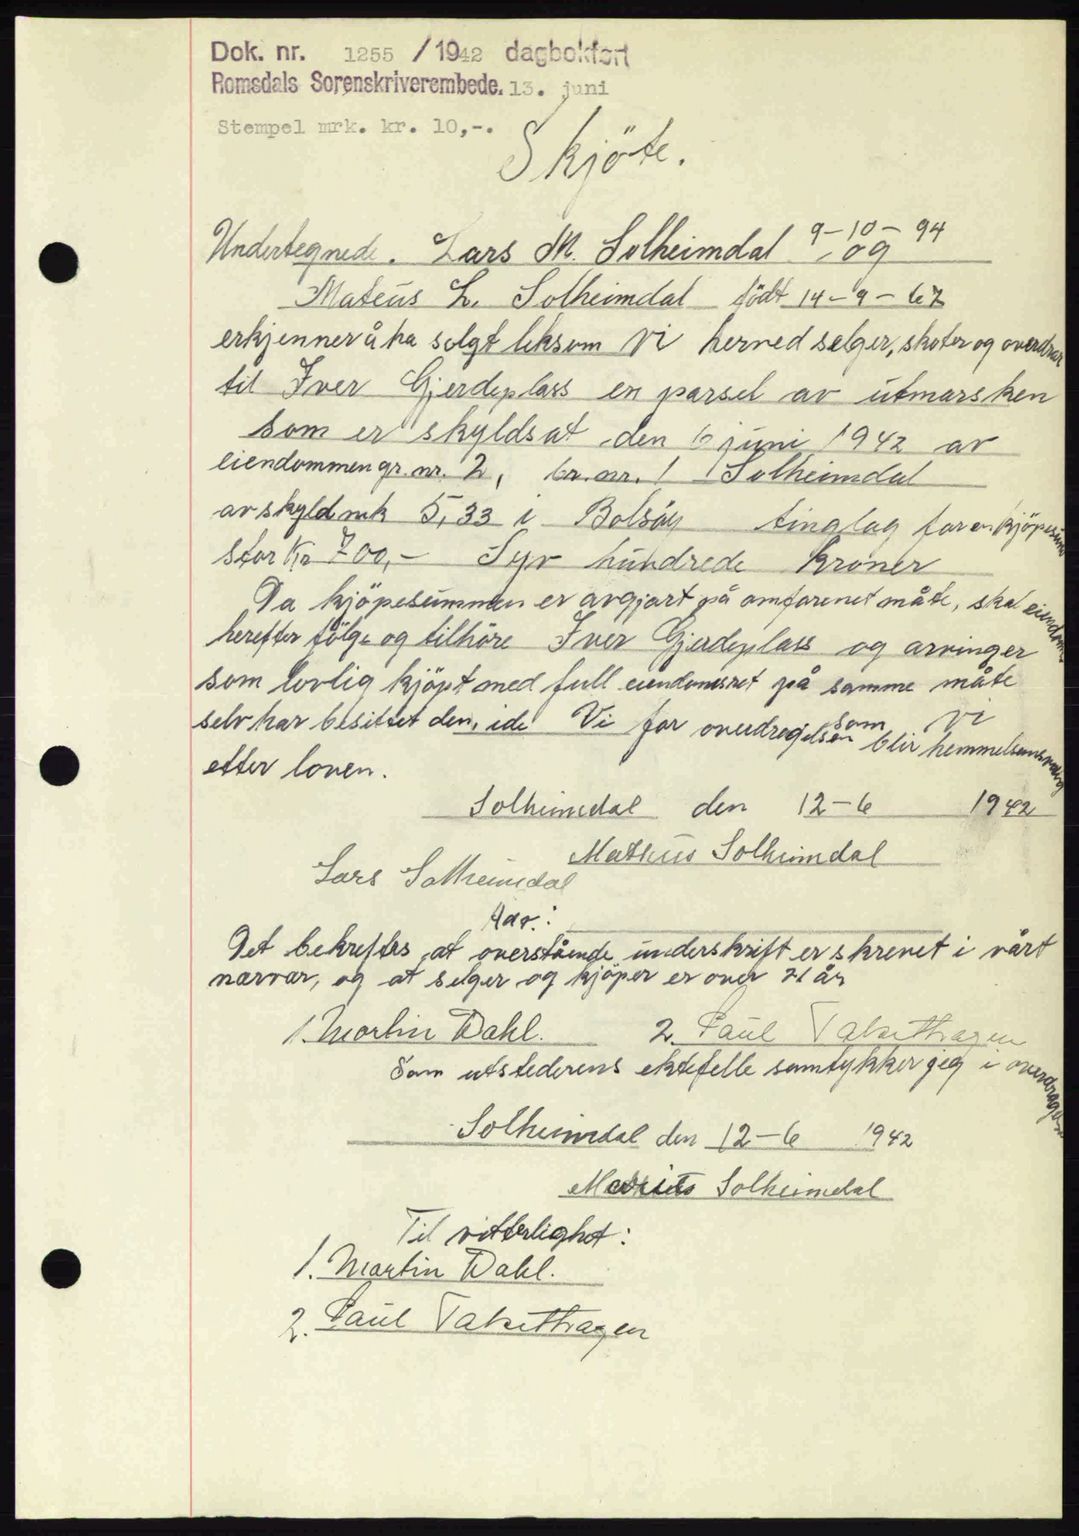 Dok. nr. 1255 / 1942 dagbokført
Romsdals Sorenskriverembede. 13. juni
Stempel mrk. kr. 10,-.
Skjöte.
Undertegnede. Lars M. Solheimdal 9-10-94 og
Mateus L. Solheimdal född 14-9-67
erkjenner å ha solgt liksom Vi herved selger, skøter og overdrar
til Iver Gjerdeplass en parsel av utmarsken
som er skyldsat den 6 juni 1942 av
eiendommen gr. nr. 2, br. nr. 1 Solheimdal
av skyld mk 5,33 i Bolsöy tinglag for en kjöpesum
stor Kr 700,- Syv hundrede Kroner
Da kjöpesummen er avgjort på omforenet måte, skal eiendommen
herefter fölge og tilhöre Iver Gjerdeplass og arvinger
som lovlig kjöpt med full eiendomsret på samme måte
som Vi
selv har besittet den, idet Vi for overdragelsen blir hemmelsansvarlig
etter loven.
Solheimdal den 12-6 1942
Matheus Solheimdal
Lars Solheimdal
Adr.:
Det bekreftes at overstående underskrift er skrevet i vårt
nærvær, og at selger og kjöper er over 21 år
1. Martin Dahl. 2. Paul Talsethagen
Som utstederens ektefelle samtykker jeg i overdragelsen
Solheimdal den 12-6 1942
Solheimdal
Til vitterlighet:
1. Martin Dahl.
2. Paul Talsethagen